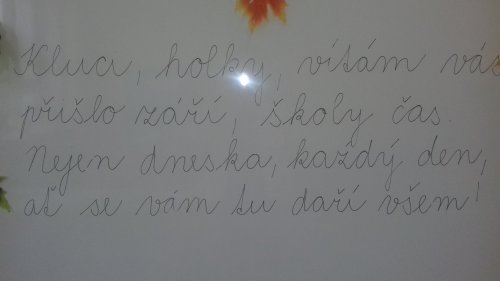 Kluci, holky, vítám vás
přišlo září, školy čas.
Nejen dneska, každý den,
ať se vám tu daří všem!